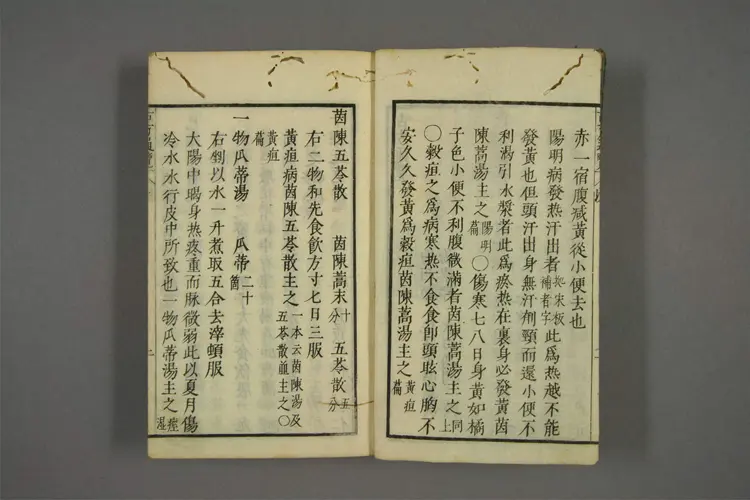 赤一宿腹減黃從小便去也
陽明病發熱汗出者此爲熱越不能
發黃也但頭汗出身無汗劑頸而還小便不
利渴引水漿者此爲瘀热在裏身必發黃茵
陳蒿湯主之陽明篇〇傷寒七八日身黃如橘
子色小便不利腹微滿者茵陳蒿湯主之同上
〇穀疸之爲病寒热不食食卽頭眩心胸不
安久久發黃爲穀疸茵陳蒿湯主之黃疸篇
茵陳五苓散 茵陳蒿末十分 五苓散五分
右二物和先食飮方寸七日三服
黃疸病茵陳五苓散主之一本云茵陳湯及五苓散並主之〇
黃疸篇
一物瓜蒂湯 瓜蒂二十箇
右剉以水一升煮取五合去滓頓服
大陽中暍身热疼重而脉微弱此以夏月傷
冷水水行皮中所致也一物瓜蒂湯主之痙濕